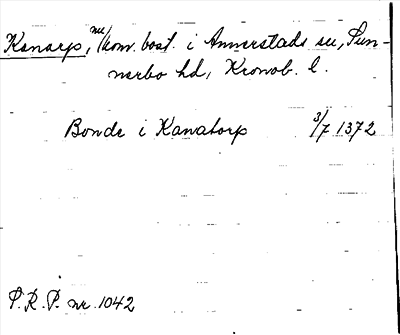 Kanarp, nu kom. bost. i Annerstads sn, Sun-
nerbo hd, Kronob. l.
Bonde i Kanatorp 3/7 1372
P.R.P. nr. 1042